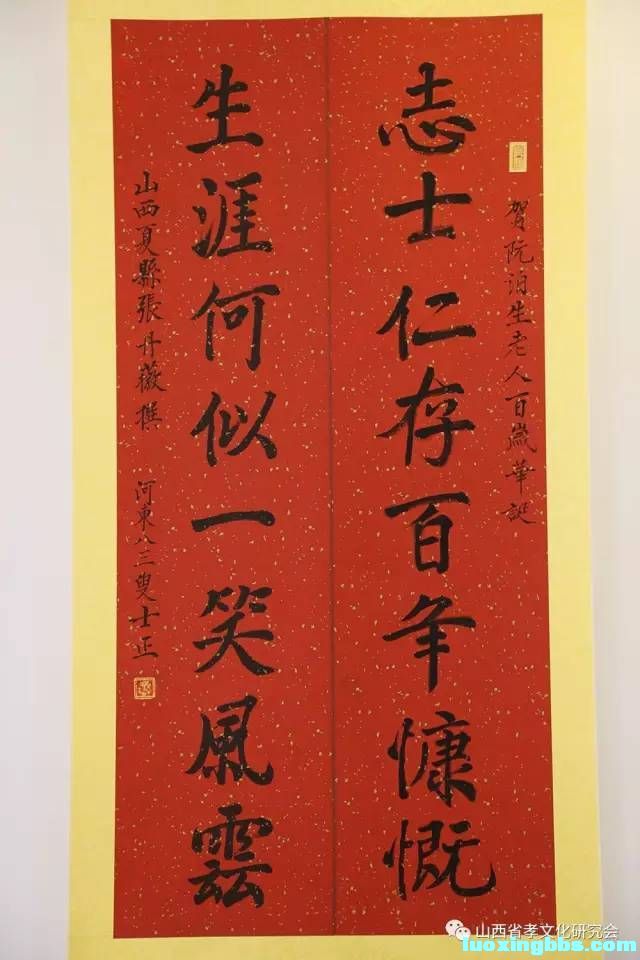 贺阮泊生老人百歲華誕
志士仁存百年慷慨
生涯何似一笑風雲
山西夏縣張丹薇撰 河東八三叟士正
山西省孝文化研究会
luoxingbbs.com